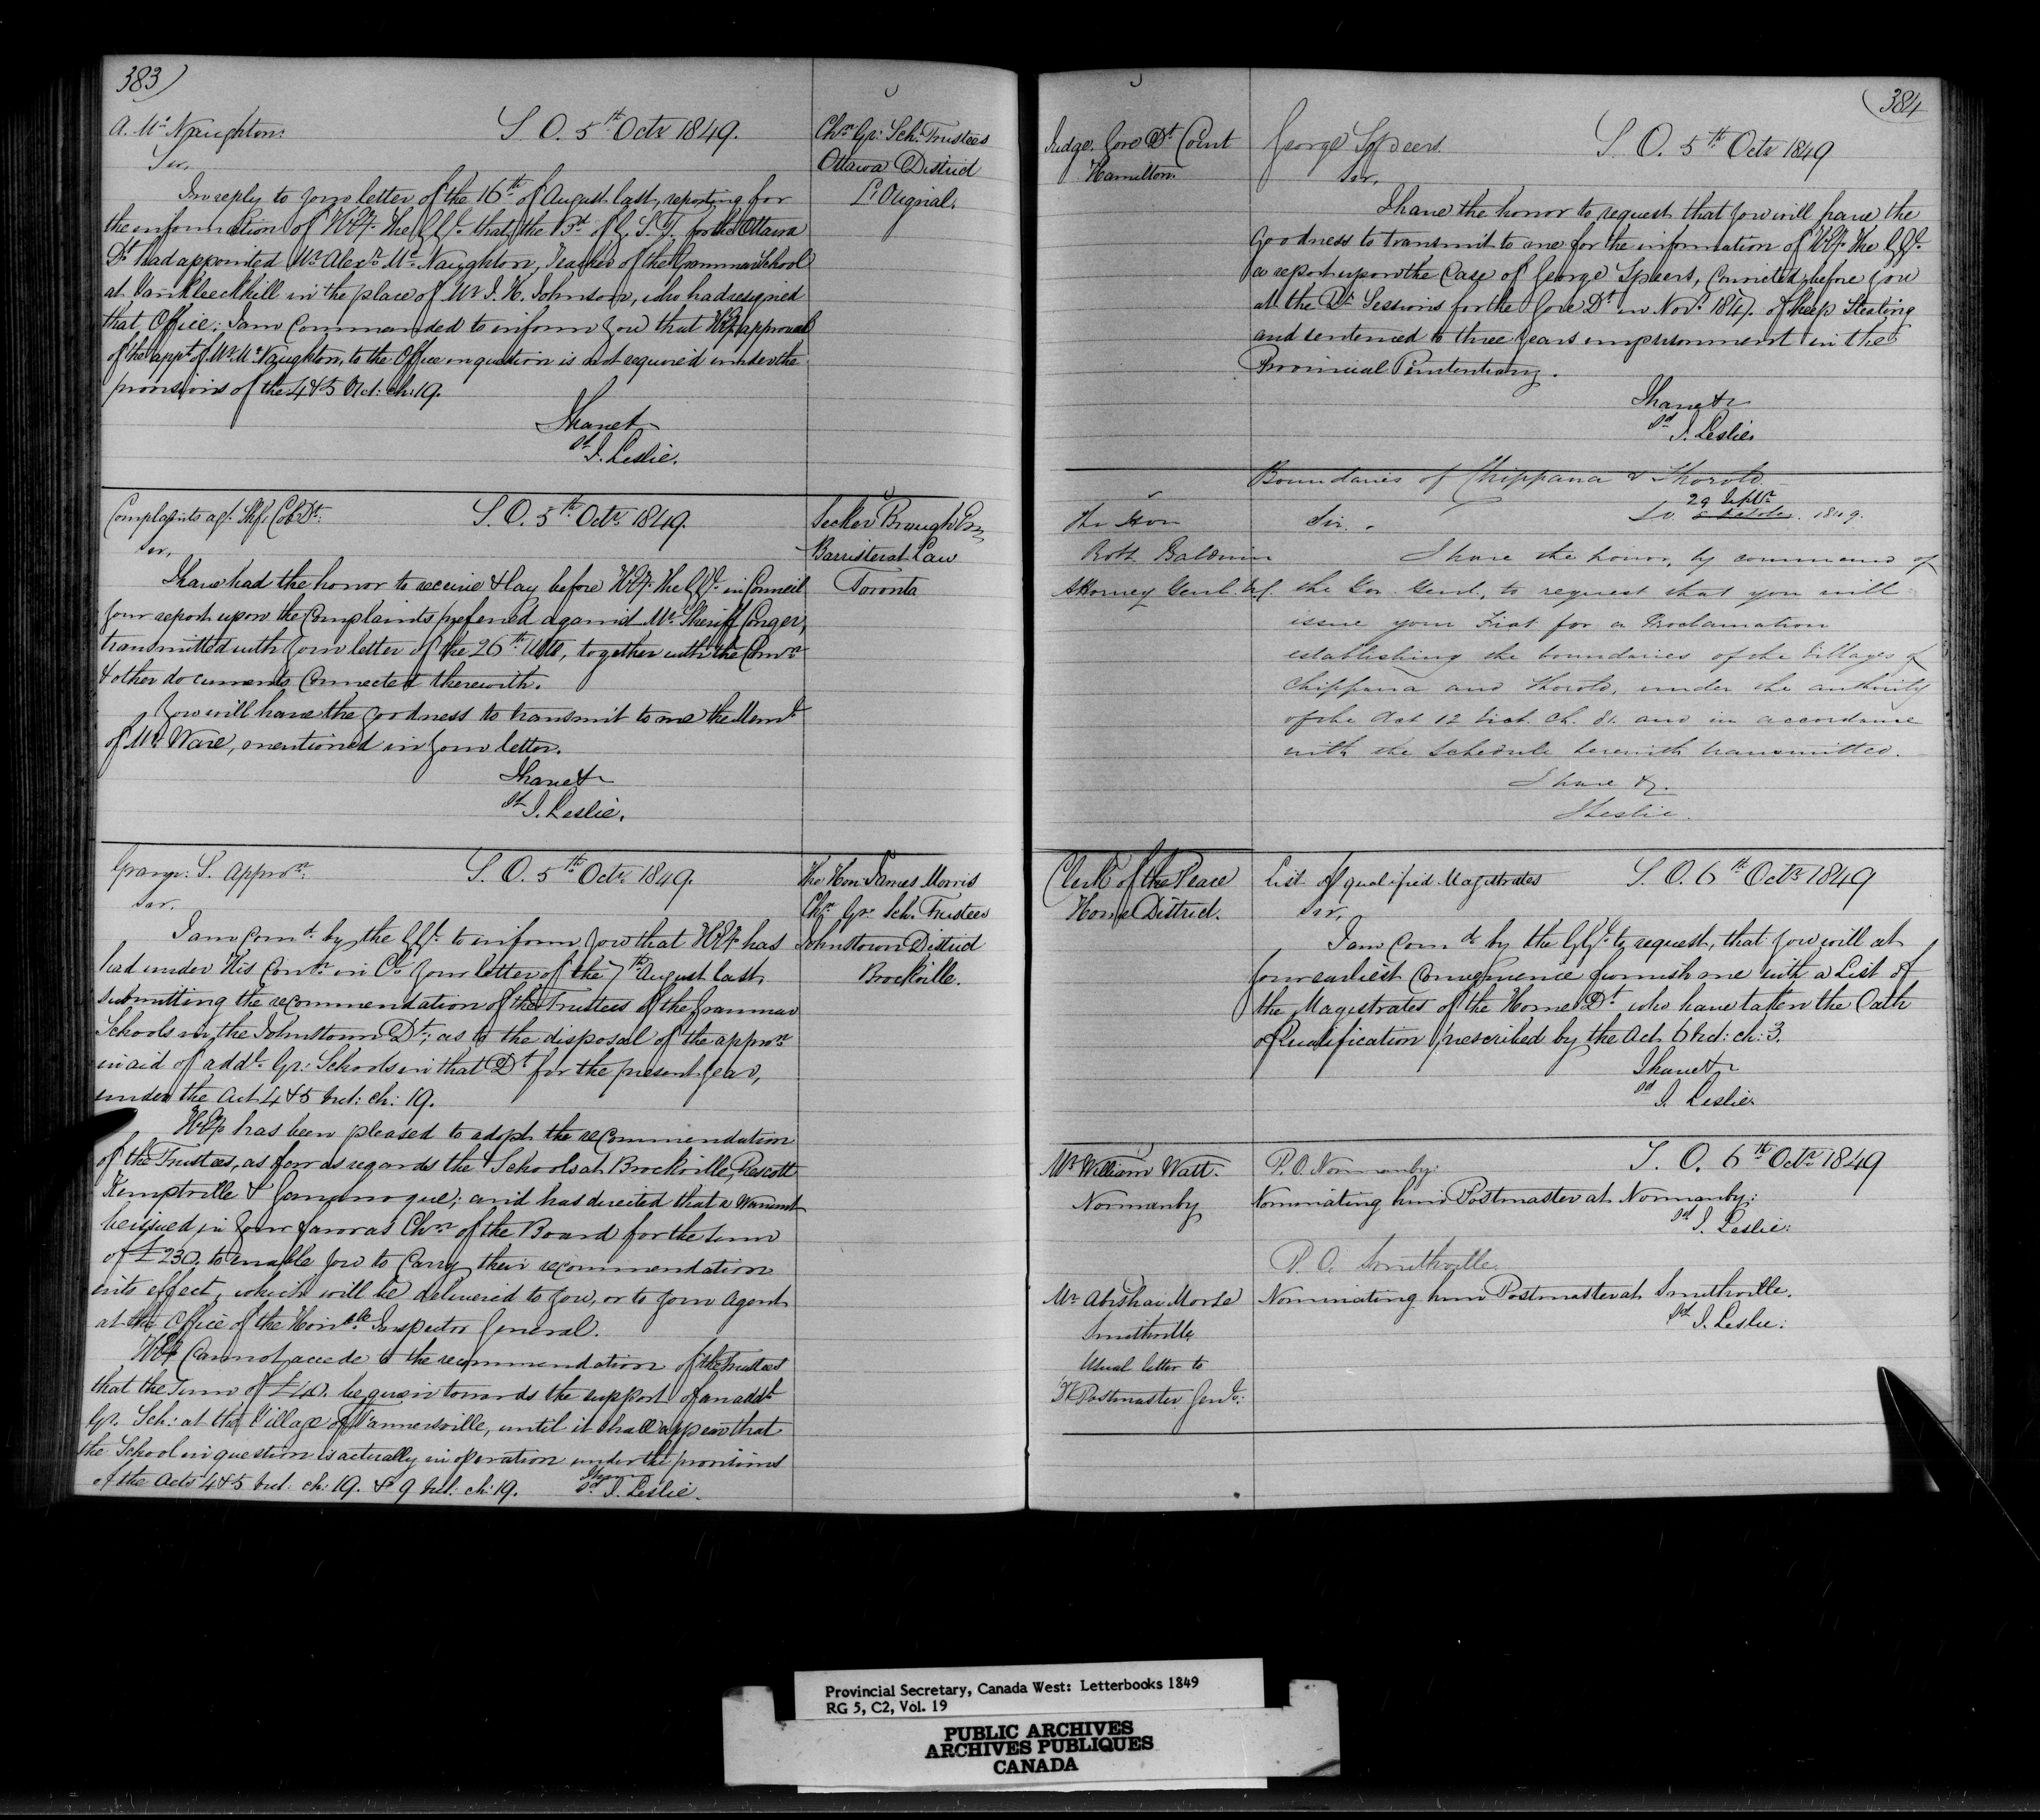 383)
A. Mc Naughton.
S. O. 5th Octr 1849.
Chn Gr: Sch: Trustees
Ottawa District
L'Orignal.
Sir,
In reply to your letter of the 16th of August last, reporting for
the information of H. E. The G. G. that the Bd of G. S. T. for the Ottawa
Dt had appointed Mr Alexr Mc Naughton, Teacher of the Grammar School
at Vankleekhill in the place of Mr J. H. Johnson, who had resigned
that Office; I am Commanded to inform you that H. E. approval
of the appt of Mr Mc Naughton, to the Office in question is not required under the
provisions of the 4 & 5 Vict: ch: 19.
I have &
sd J. Leslie.
Complaints agt. Shff. Col: Dt.
S. O. 5th Octr 1849.
Secker Brough Esq
Barrister at Law
Toronto
Sir,
I have had the honor to receive & lay before H. E. The G. G. in Council
your report upon the Complaints preferred against Mr Sheriff Conger,
transmitted with your letter of the 26th Ulto, together with the Comn
& other documents Connected therewith.
You will have the goodness to transmit to me the Meml
of Mr Ware, mentioned in your letter.
I have &
sd J. Leslie.
Grammr. S. Appron.
S. O. 5th Octr 1849.
The Hon: James Morris
Chn Gr: Sch: Trustees
Johnstown District
Brockville.
Sir,
I am Comd by the G. G. to inform you that H. E. has
had under His Conn in Cl. your letter of the 7th August last,
submitting the recommendation of the Trustees of the Grammar
Schools in the Johnstown Dt; as to the disposal of the appron
in aid of addl Gr: Schools in that Dt for the present year,
under the Act 4 & 5 Vict: ch: 19.
H. E. has been pleased to adopt the recommendation
of the Trustees, as far as regards the Schools at Brockville, Prescott
Kemptville & Gananoque; and has directed that a Warrant
be issued in your favor as Chn of the Board for the sum
of £230. to enable you to Carry their recommendation
into effect, which will be delivered to you, or to your Agent
at the Office of the Honble Inspector General.
H. E. Cannot accede to the recommendation of the Trustees
that the Sum of £40. be given towards the support of an addl
Gr. Sch: at the Village of Farmersville, until it shall appear that
the School in question is actually in operation under the provisions
of the Acts 4 & 5 Vict: ch: 19. & 9 Vict: ch: 19.
I have
sd J. Leslie.
(384
Judge. Gore Dt Court
Hamilton.
George Speers.
S. O. 5th Octr 1849
Sir,
I have the honor to request that you will have the
goodness to transmit to me for the information of H. E. The G. G.
a report upon the Case of George Speers, Convicted before you
at the Qr Sessions for the Gore Dt in Novr 1847. of Sheep Stealing
and sentenced to three years imprisonment in the
Provincial Penitentiary.
I have &
sd J. Leslie.
Boundaries of Chippawa & Thorold
29 Septr
S. O. 5 October. 1849.
The Hon
Robt. Baldwin
Attorney Genl. W.
Sir.
I have the honor, by command of
the Gov. Genl, to request that you will
issue your Fiat for a Proclamation
establishing the boundaries of the Villages of
Chippawa and Thorold, under the authority
of the Act 12 Vict. Ch. 81. and in accordance
with the Schedule herewith transmitted.
I have &.
J Leslie.
Clerk of the Peace
Home District.
List of qualified Magistrates
S. O. 6th Octr 1849
Sir,
I am Comd by the G. G. to request, that you will at
your earliest Convenience furnish me with a List of
the Magistrates of the Home Dt who have taken the Oath
of Qualification prescribed by the Act 6 Vict: ch: 3.
I have &
sd J. Leslie.
Mr William Watt.
Normanby
P. O. Normanby.
S. O. 6th Octr 1849
Nominating him Postmaster at Normanby:
sd J. Leslie:
P. O. Smithville.
Mr Abishai Morse
Smithville
Nominating him Postmaster at Smithville.
sd J. Leslie:
Usual letter to
D. Postmaster Genl:
Provincial Secretary, Canada West: Letterbooks 1849
RG 5, C2, Vol. 19
PUBLIC ARCHIVES
ARCHIVES PUBLIQUES
CANADA